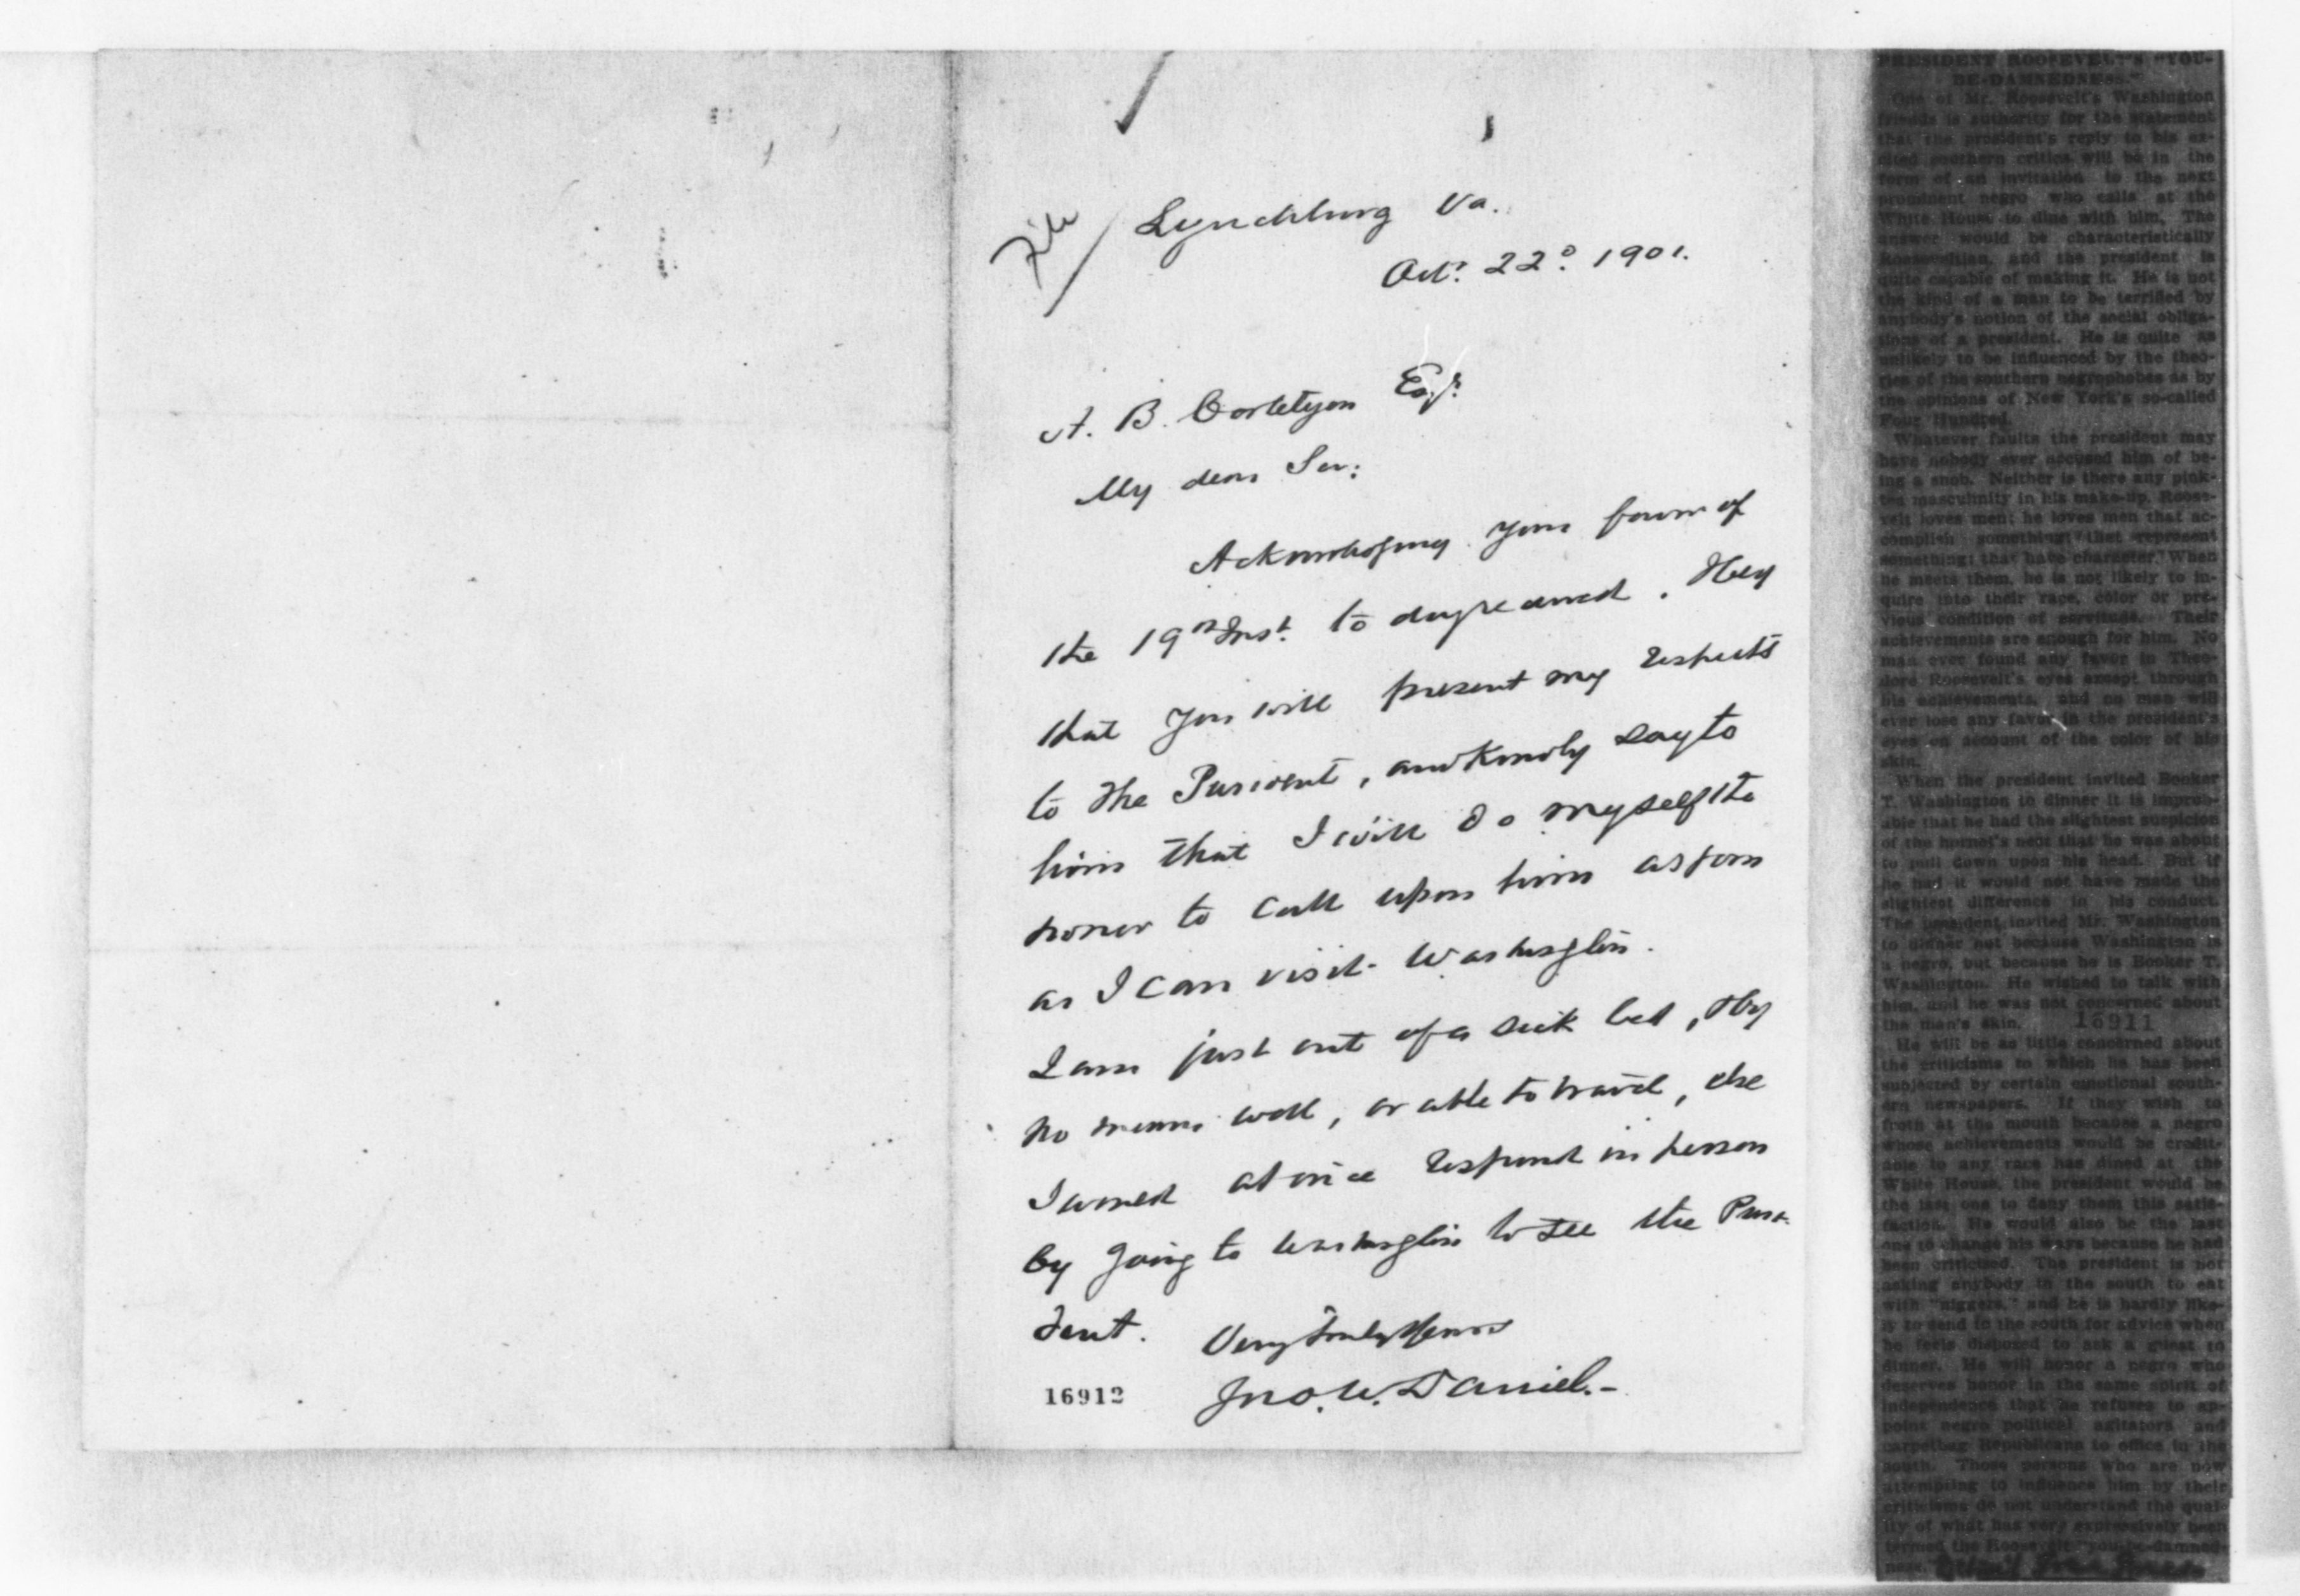 File
Lynchburg Va.
Oct. 22d. 1901.
A. B. Cortelyou Esqr.
My dear Sir:
Acknowledging your favor of
the 19th Inst. to day received. I beg
that you will present my respects
to the President, and kindly say to
him that I will do myself the
honor to call upon him as soon
as I can visit Washington.
I am just out of a sick bed, & by
no means well, or able to travel, else
I would at once respond in person
by going to Washington to see the Presi-
dent. Very truly yours
16912 Jno. W. Daniel.-
PRESIDENT ROOSEVELT'S "YOU-
BE-DAMNEDNESS."
One of Mr. Roosevelt's Washington
friends is authority for the statement
that the president's reply to his ex-
cited southern critics will be in the
form of an invitation to the next
prominent negro who calls at the
White House to dine with him. The
answer would be characteristically
Rooseveltian, and the president is
quite capable of making it. He is not
the kind of a man to be terrified by
anybody's notion of the social obliga-
tions of a president. He is quite as
unlikely to be influenced by the theo-
ries of the southern negrophobes as by
the opinions of New York's so-called
Four Hundred.
Whatever faults the president may
have nobody ever accused him of be-
ing a snob. Neither is there any pink-
tea masculinity in his make-up. Roose-
velt loves men; he loves men that ac-
complish something; that represent
something; that have character. When
he meets them, he is not likely to in-
quire into their race, color or pre-
vious condition of servitude. Their
achievements are enough for him. No
man ever found any favor in Theo-
dore Roosevelt's eyes except through
his achievements, and no man will
ever lose any favor in the president's
eyes on account of the color of his
skin.
When the president invited Booker
T. Washington to dinner it is improb-
able that he had the slightest suspicion
of the hornet's nest that he was about
to pull down upon his head. But if
he had it would not have made the
slightest difference in his conduct.
The president invited Mr. Washington
to dinner not because Washington is
a negro, but because he is Booker T.
Washington. He wished to talk with
him, and he was not concerned about
the man's skin. 16911
He will be as little concerned about
the criticisms to which he has been
subjected by certain emotional south-
ern newspapers. If they wish to
froth at the mouth because a negro
whose achievements would be credit-
able to any race has dined at the
White House, the president would be
the last one to deny them this satis-
faction. He would also be the last
one to change his ways because he had
been criticised. The president is not
asking anybody in the south to eat
with "niggers," and he is hardly like-
ly to send to the south for advice when
he feels disposed to ask a guest to
dinner. He will honor a negro who
deserves honor in the same spirit of
independence that he refuses to ap-
point negro political agitators and
carpetbag Republicans to office in the
south. Those persons who are now
attempting to influence him by their
criticisms do not understand the qual-
ity of what has very expressively been
termed the Roosevelt "you-be-damned-